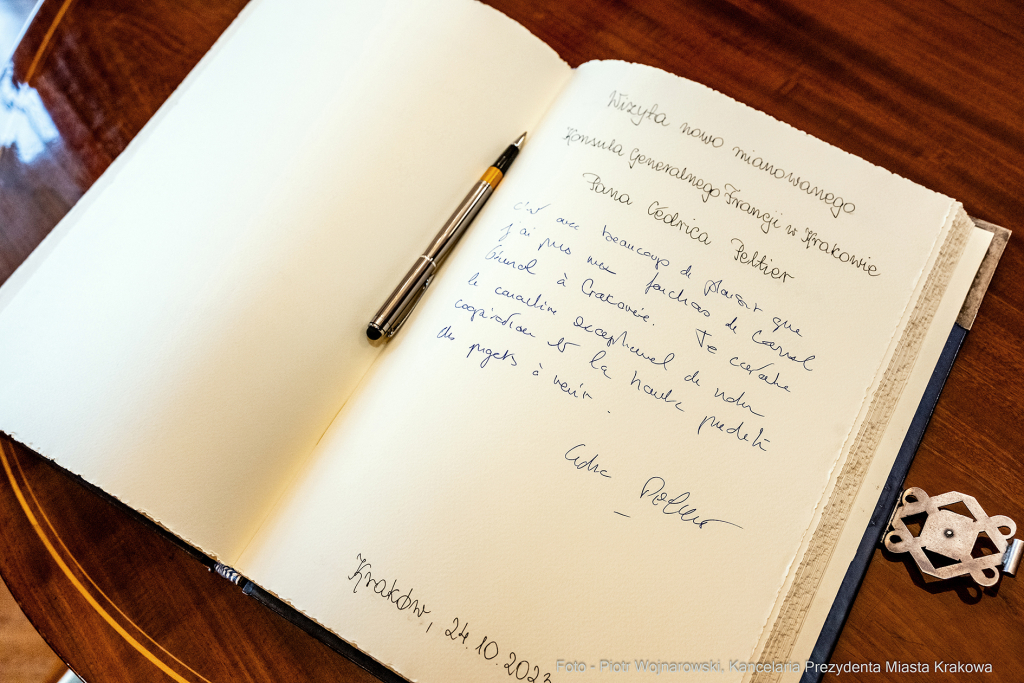 Wizyta nowo mianowanego
Konsula Generalnego Francji w Krakowie
Pana Cédrica Peltier
C'est avec beaucoup de plaisir que
j'ai pris mes fonctions de Consul
Général à Cracovie. Je
le caractère exceptionnel de notre
coopération et la haute
des projets à venir.
Kraków, 24.10.202
Foto - Piotr Wojnarowski. Kancelaria Prezydenta Miasta Krakowa